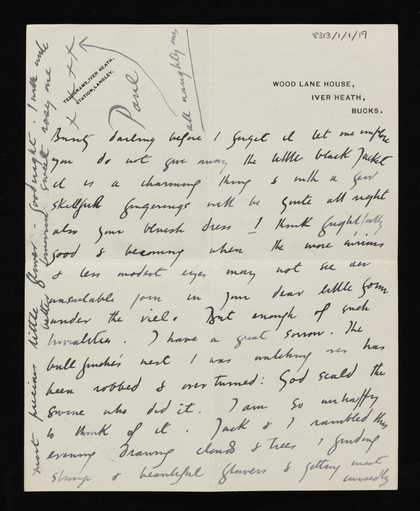 8313/1/1/19
WOOD LANE HOUSE,
IVER HEATH,
BUCKS.
TELEGRAMS, IVER HEATH.
STATION, LANGLEY.
Paul
x x x x
all naughty ones
Bunty darling before I forget it let me implore
you do not give away the little black Jacket
it is a charming thing & with a few
skilful fingerings will be quite all right
also your blueish dress I think frightfully
good & becoming when the more envious
& less modest eyes may not see
unsuitable form in your dear little form
under the veil. But enough of such
trivialities. I have a great sorrow. The
bullfinch's nest I was watching over has
been robbed & overturned: God scald the
swine who did it. I am so unhappy
to think of it. Jack & I rambled this
evening drawing clouds & trees & finding
strange & beautiful flowers & getting most
most precious little flower. Goodnight. I will write
better tomorrow sweet rosy one